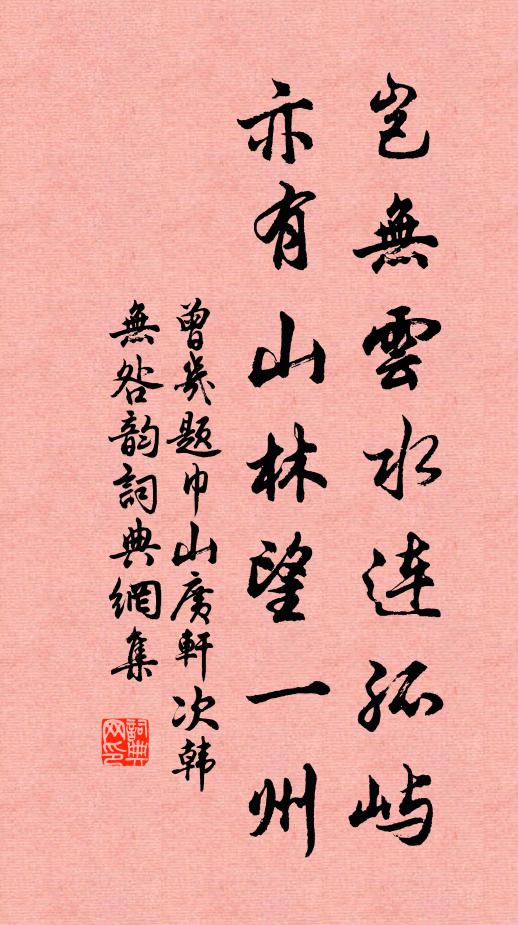 豈無雲水连孤屿
亦有山林望一州
曾幾题巾山廣軒次韩
無咎韵詞典網集
詞典网印